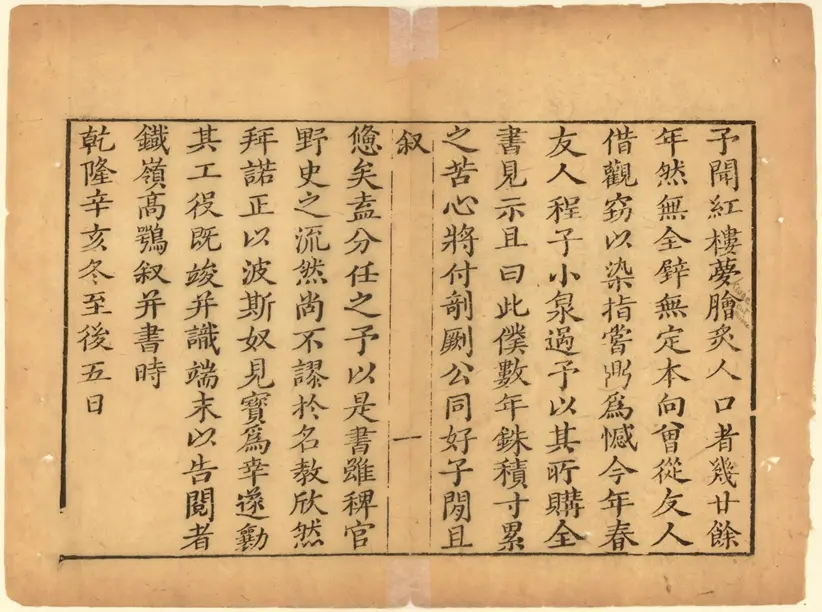 予聞紅樓夢膾炙人口者幾廿餘
年然無全璧無定本向曾從友人
借觀窃以染指嘗鼎爲憾今年春
友人程子小泉過予以其所購全
書見示且曰此僕數年銖積寸累
之苦心將付剞劂公同好子閒且
叙
一
憊矣盍分任之予以是書雖稗官
野史之流然尚不謬於名教欣然
拜諾正以波斯奴見寶爲幸遂勷
其工役既竣并識端末以告閱者
鐵嶺高鶚叙并書時
乾隆辛亥冬至後五日